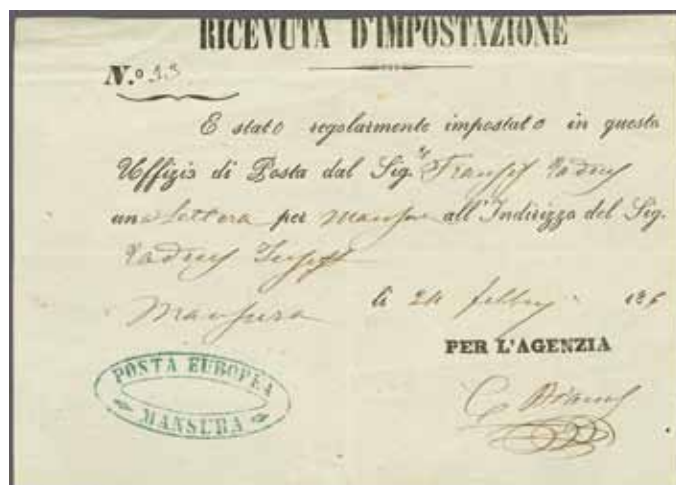 RICEVUTA D'IMPOSTAZIONE
N.º 33
È stato regolarmente impostato in questo
Uffizio di Posta dal Sig.r
una Lettera per Mansura all'Indirizzo del Sig.
Mansura li 24 186
PER L'AGENZIA
POSTA EUROPEA
MANSURA